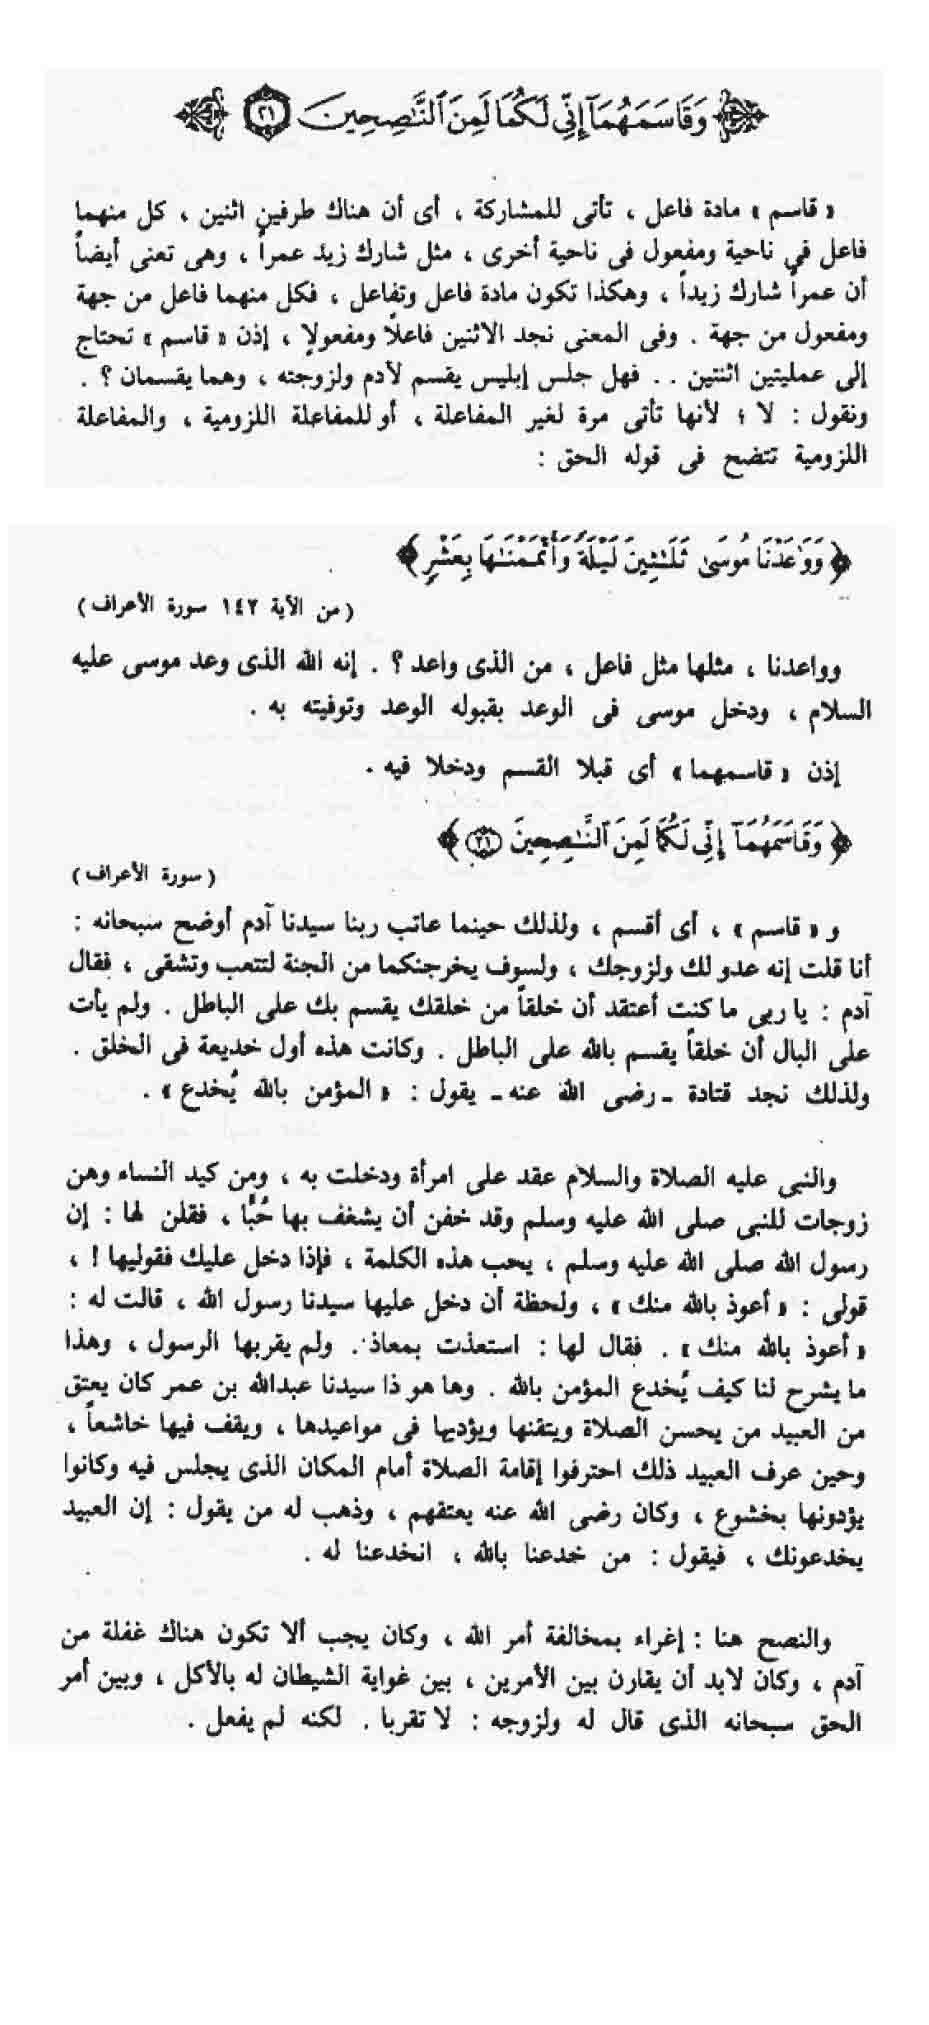 وَقَاسَمَهُمَآ إِنِّي لَكُمَا لَمِنَ ٱلنَّٰصِحِينَ ٢١
« قاسم » مادة فاعل ، تأتى للمشاركة ، أى أن هناك طرفين اثنين ، كل منهما
فاعل فى ناحية ومفعول فى ناحية أخرى ، مثل شارك زيدٌ عمراً ، وهى تعنى أيضاً
أن عمراً شارك زيداً ، وهكذا تكون مادة فاعل وتفاعل ، فكل منهما فاعل من جهة
ومفعول من جهة . وفى المعنى نجد الاثنين فاعلاً ومفعولا ، إذن « قاسم » تحتاج
إلى عمليتين اثنتين . . فهل جلس إبليس يقسم لآدم ولزوجته ، وهما يقسمان ؟ .
ونقول : لا ؛ لأنها تأتى مرة لغير المفاعلة ، أو للمفاعلة اللزومية ، والمفاعلة
اللزومية تتضح فى قوله الحق :
﴿ وَوَٰعَدْنَا مُوسَىٰ ثَلَٰثِينَ لَيْلَةً وَأَتْمَمْنَٰهَا بِعَشْرٍ ﴾
( من الآية ١٤٢ سورة الأعراف )
وواعدنا ، مثلها مثل فاعل ، من الذى واعد ؟ . إنه الله الذى وعد موسى عليه
السلام ، ودخل موسى فى الوعد بقبوله الوعد وتوفيته به .
إذن « قاسمهما » أى قبلا القسم ودخلا فيه .
﴿ وَقَاسَمَهُمَآ إِنِّي لَكُمَا لَمِنَ ٱلنَّٰصِحِينَ ٢١ ﴾
( سورة الأعراف )
و « قاسم » ، أى أقسم ، ولذلك حينما عاتب ربنا سيدنا آدم أوضح سبحانه :
أنا قلت إنه عدو لك ولزوجك ، ولسوف يخرجنكما من الجنة لتتعب وتشقى ، فقال
آدم : يا ربى ما كنت أعتقد أن خلقاً من خلقك يقسم بك على الباطل . ولم يأت
على البال أن خلقاً يقسم بالله على الباطل . وكانت هذه أول خديعة فى الخلق .
ولذلك نجد قتادة ـ رضى الله عنه ـ يقول : « المؤمن بالله يُخدع » .
والنبى عليه الصلاة والسلام عقد على امرأة ودخلت به ، ومن كيد النساء وهن
زوجات للنبى صلى الله عليه وسلم وقد خفن أن يشغف بها حُبًّا ، فقلن لها : إن
رسول الله صلى الله عليه وسلم ، يحب هذه الكلمة ، فإذا دخل عليك فقوليها ! ،
قولى : « أعوذ بالله منك » ، ولحظة أن دخل عليها سيدنا رسول الله ، قالت له :
« أعوذ بالله منك » . فقال لها : استعذت بمعاذ . ولم يقربها الرسول ، وهذا
ما يشرح لنا كيف يُخدع المؤمن بالله . وها هو ذا سيدنا عبدالله بن عمر كان يعتق
من العبيد من يحسن الصلاة ويتقنها ويؤديها فى مواعيدها ، ويقف فيها خاشعاً ،
وحين عرف العبيد ذلك احترفوا إقامة الصلاة أمام المكان الذى يجلس فيه وكانوا
يؤدونها بخشوع ، وكان رضى الله عنه يعتقهم ، وذهب له من يقول : إن العبيد
يخدعونك ، فيقول : من خدعنا بالله ، انخدعنا له .
والنصح هنا : إغراء بمخالفة أمر الله ، وكان يجب ألا تكون هناك غفلة من
آدم ، وكان لابد أن يقارن بين الأمرين ، بين غواية الشيطان له بالأكل ، وبين أمر
الحق سبحانه الذى قال له ولزوجه : لا تقربا . لكنه لم يفعل .